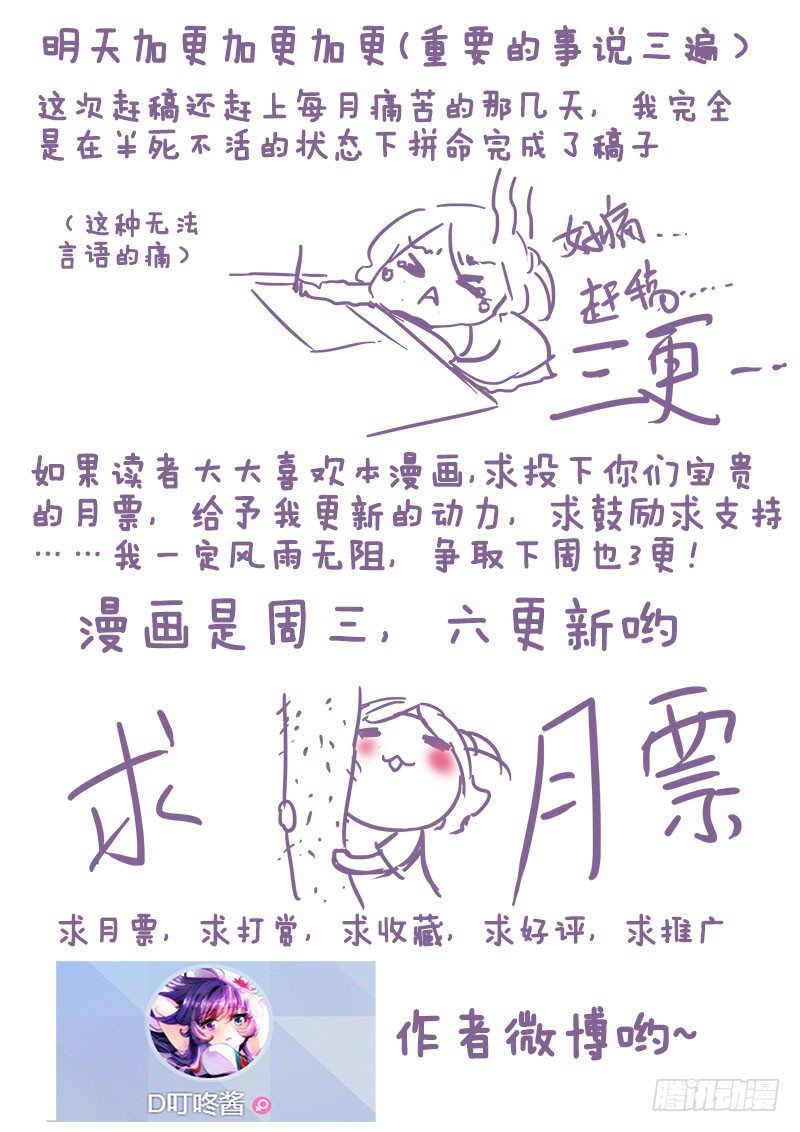 明天加更加更加更(重要的事说三遍)
这次赶稿还赶上每月痛苦的那几天, 我完全
是在半死不活的状态下拼命完成了稿子
(这种无法
言语的痛)
好痛…
赶稿……
三更——…
如果读者大大喜欢本漫画,求投下你们宝贵
的月票, 给予我更新的动力, 求鼓励求支持
……我一定风雨无阻, 争取下周也3更!
漫画是周三, 六更新哟
求 月票
求月票, 求打赏, 求收藏, 求好评, 求推广
作者微博哟~
D叮咚酱
腾讯动漫